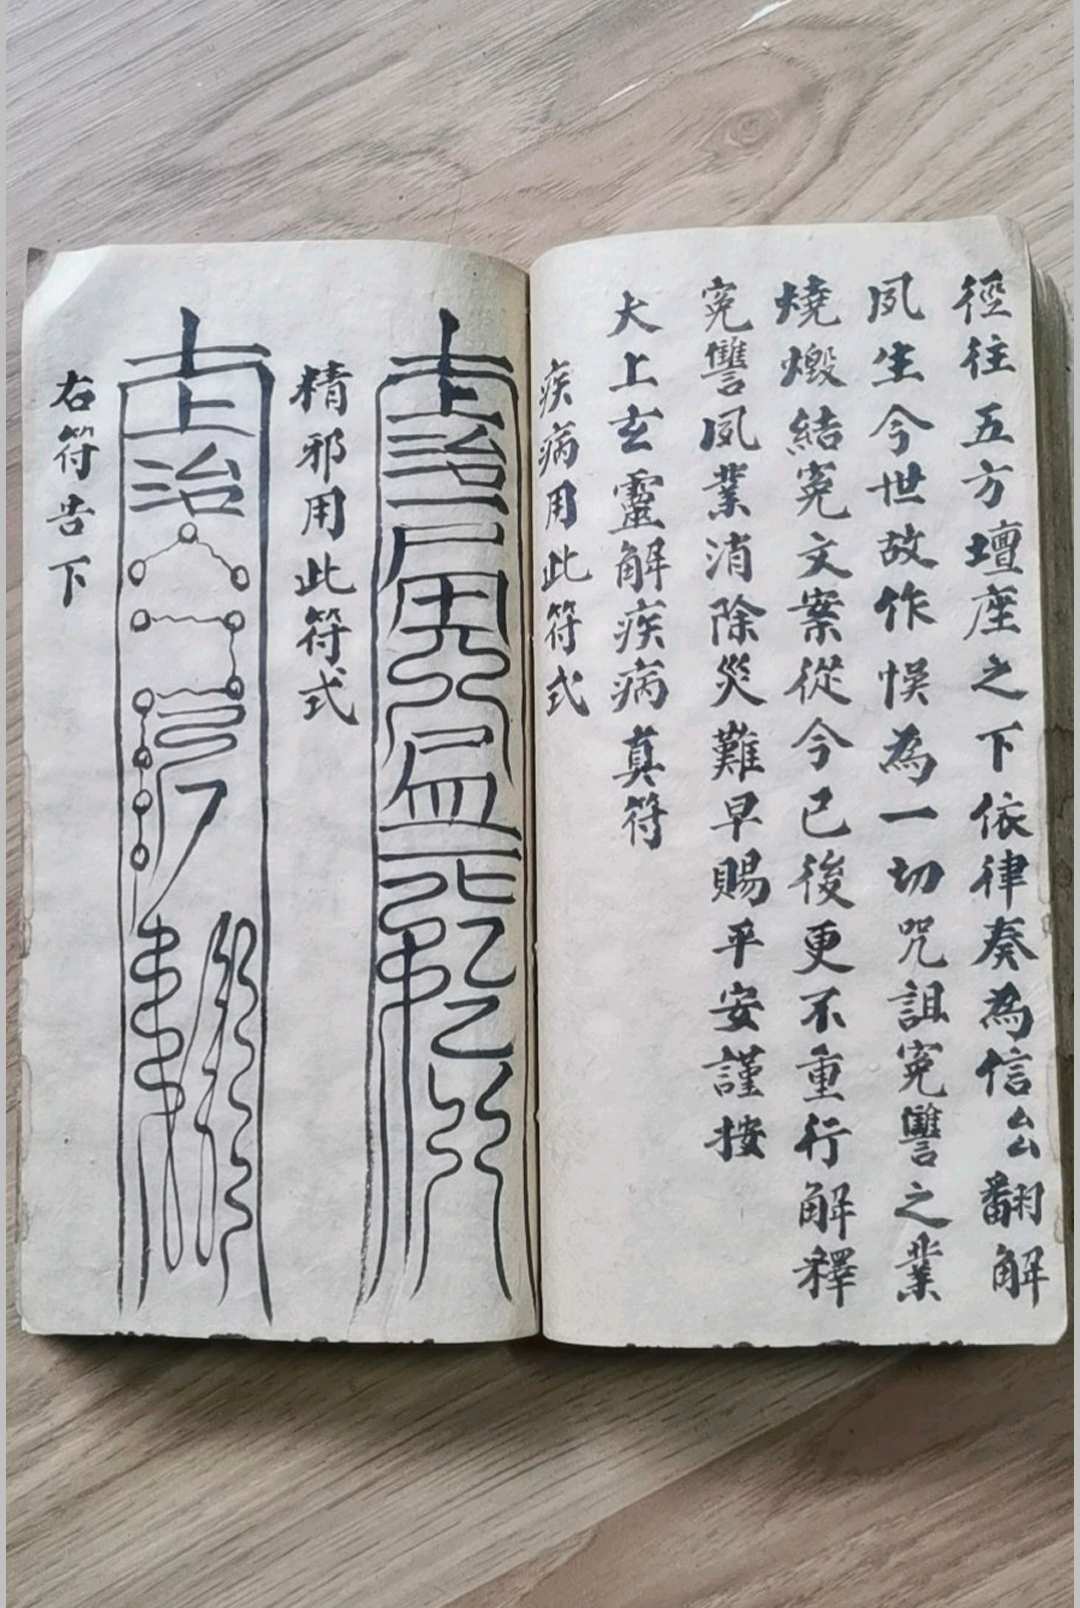 徑往五方壇座之下依律奏為信厶翻解
夙生今世故作悮為一切咒詛寃讐之業
燒燬結寃文案從今已後更不重行解釋
寃讐夙業消除災難早賜平安謹按
太上玄靈解疾病真符
疾病用此符式
精邪用此符式
右符告下